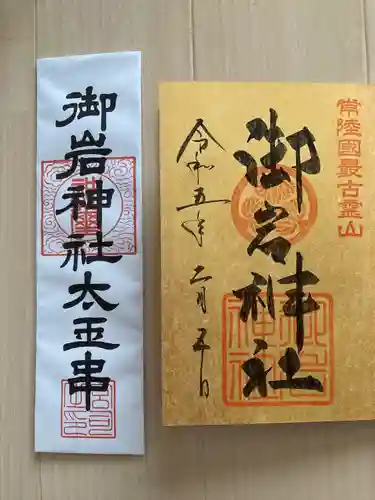 御岩神社太玉串
常陸國最古霊山
御岩神社
令和五年二月五日